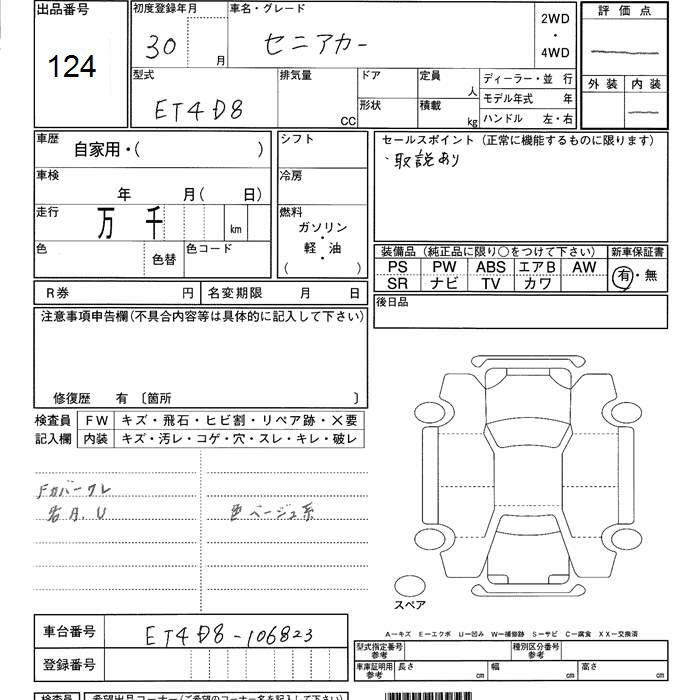 出品番号
124
初度登録年月
30 月
車名・グレード
セニアカー
2WD
・
4WD
評価点
外装 内装
型式
ET4D8
排気量
CC
ドア
形状
定員
人
積載
kg
ディーラー・並 行
モデル年式 年
ハンドル 左・右
車歴
自家用・( )
車検
年 月( 日)
走行
万 千 km
色
色替
色コード
シフト
冷房
燃料
ガソリン
・
軽・油
・
( )
セールスポイント (正常に機能するものに限ります)
・取説あり
装備品 (純正品に限り○をつけて下さい)
PS PW ABS エアB AW
SR ナビ TV カワ
新車保証書
有・無
R券 円
名変期限 月 日
後日品
注意事項申告欄(不具合内容等は具体的に記入して下さい)
修復歴 有 〔箇所 〕
検査員
記入欄
FW キズ・飛石・ヒビ割・リペア跡・X要
内装 キズ・汚レ・コゲ・穴・スレ・キレ・破レ
Fカバーワレ
U
色ベージュ系
スペア
A─キズ E─エクボ U─凹み W─補修跡 S─サビ C─腐食 XX─交換済
車台番号
ET4D8-106823
登録番号
型式指定番号
参考
種別区分番号
参考
車庫証明用
参考
長さ cm
幅 cm
高さ cm
検査員
希望出品コーナー(ご希望のコーナー名を記入下さい)